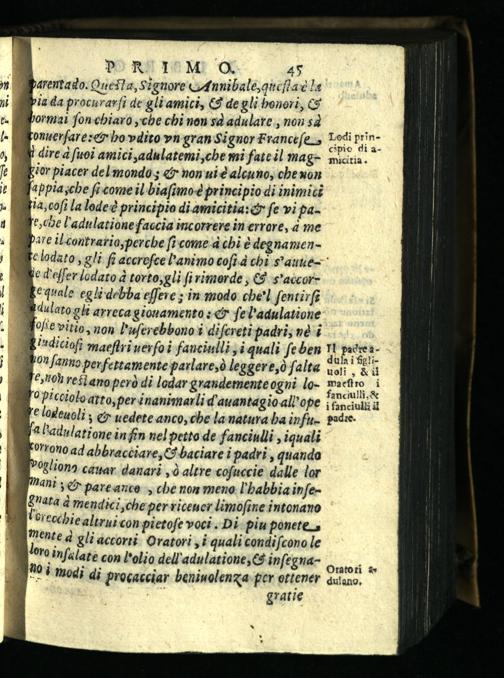 PRIMO. 45
parentado. Questa, Signore Annibale, questa è la
via da procurarsi de gli amici, & de gli honori, &
hormai son chiaro, che chi non sà adulare, non sà
conuersare: & ho vdito vn gran Signor Francese
à dire à suoi amici, adulatemi, che mi fate il mag-
gior piacer del mondo; & non ui è alcuno, che non
sappia, che si come il biasimo è principio di inimici
tia, così la lode è principio di amicitia: & se vi pa-
re, che l'adulatione faccia incorrere in errore, à me
pare il contrario, perche si come à chi è degnamen-
te lodato, gli si accresce l'animo così à chi s'auue-
de d'esser lodato à torto, gli si rimorde, & s'accor-
ge quale egli debba essere; in modo che'l sentirsi
adulato gli arreca giouamento: & se l'adulatione
fosse vitio, non l'userebbono i discreti padri, nè i
giudiciosi maestri uerso i fanciulli, i quali se ben
non sanno perfettamente parlare, ò leggere, ò salta
re, non restano però di lodar grandemente ogni lo-
ro picciolo atto, per inanimarli d'auantagio all'ope
re lodeuoli; & uedete anco, che la natura ha infu-
sa l'adulatione in fin nel petto de fanciulli, i quali
corrono ad abbracciare, & baciare i padri, quando
vogliono cauar danari, ò altre cosuccie dalle lor
mani; & pare anco, che non meno l'habbia inse-
gnata à mendici, che per riceuer limosine intonano
l'orecchie altrui con pietose voci. Di piu ponete
mente à gli accorti Oratori, i quali condiscono le
loro insalate con l'olio dell'adulatione, & insegna-
no i modi di procacciar beniuolenza per ottener
gratie
Lodi prin-
cipio di a-
micitia.
Il padre a-
dula i figli-
uoli, & il
maestro i
fanciulli, &
i fanciulli il
padre.
Oratori a-
dulano.